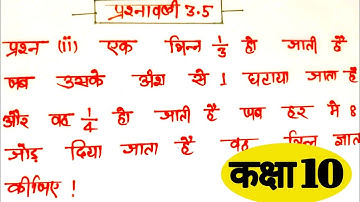 प्रश्नावली 3.5
प्रश्न (ii) एक भिन्न 1/3 हो जाती है
जब उसके अंश से 1 घटाया जाता है
और वह 1/4 हो जाती है जब हर मे 8
जोड़ दिया जाता है वह भिन्न ज्ञात
कीजिए !
कक्षा 10